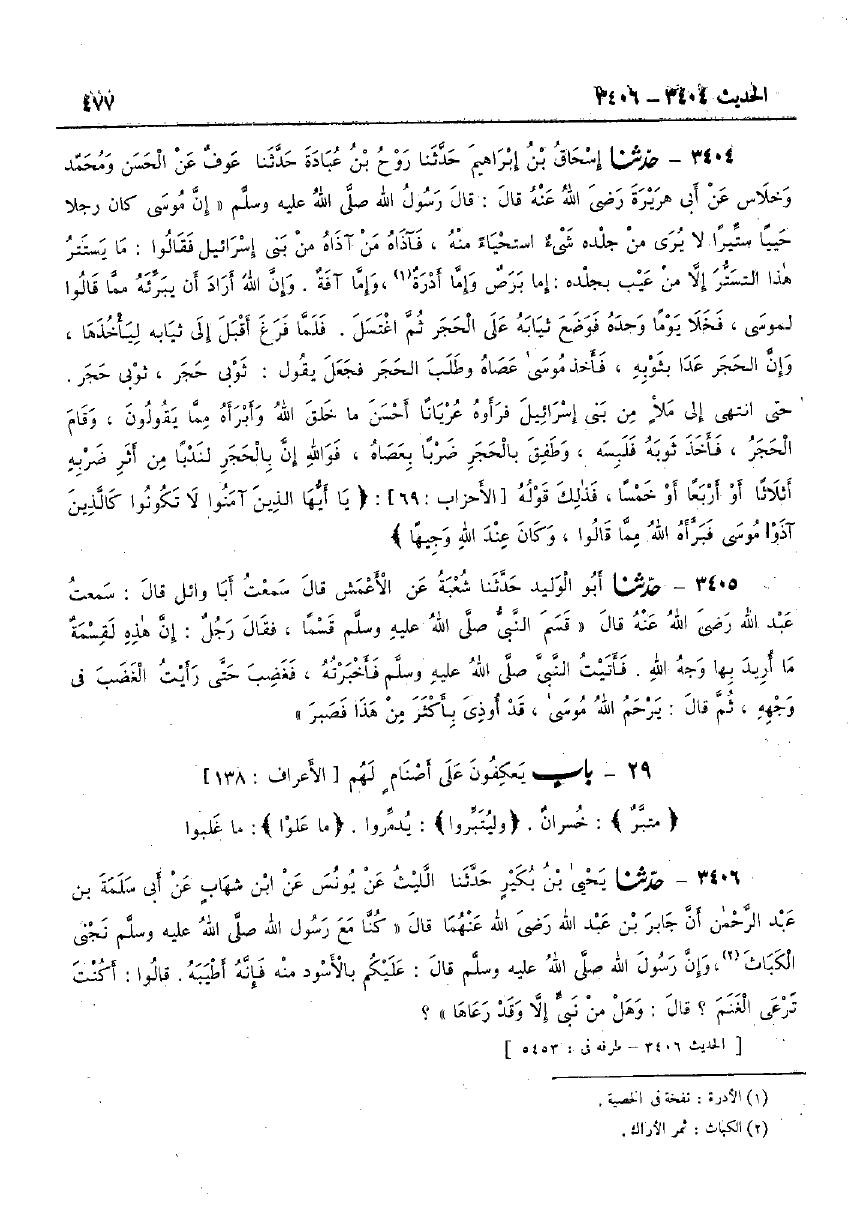 الحديث ٣٤٠٤ – ٣٤٠٦ ٤٧٧
٣٤٠٤ – حدّثنا إسْحَاقُ بْنُ إبْرَاهِيمَ حَدَّثَنا رَوْحُ بْنُ عُبَادَةَ حَدَّثَنا عَوفٌ عَنْ الْحَسَنِ وَمُحَمَّد
وَخِلَاس عَنْ أَبى هرَيْرَةَ رَضىَ اللهُ عَنْهُ قالَ : قالَ رَسُولُ الله صلَّى اللهُ عليه وسلَّم « إنَّ مُوسَى كان رجلا
حَييًا ستِّيرًا لا يُرَى منْ جلْده شَىْءٌ استحْيَاءً منْهُ ، فَآذَاهُ مَنْ آذَاهُ منْ بَنى إسْرَائيل فَقَالُوا : مَا يَستَترُ
هٰذا التستُّرَ إلَّا منْ عَيْب بجلْده : إما بَرَصٌ وَإمَّا أُدْرَةٌ(١) ، وَإمَّا آفَةٌ . وَإنَّ اللهُ أرَادَ أن يبَرِّئَهُ ممَّا قَالُوا
لموسَى ، فَخَلَا يَوْمًا وَحدَهُ فَوَضَعَ ثيَابَهُ عَلَى الْحَجَر ثُمَّ اغْتَسَلَ . فَلَمَّا فَرَغَ أقْبَلَ إلَى ثيَابه لِيَأْخُذَهَا ،
وَإنَّ الحَجَرَ عَدَا بثَوْبِهِ ، فَأخذ مُوسىٰ عَصَاهُ وطَلَبَ الحَجَرَ فجَعَلَ يقُول : ثَوْبى حَجَر ، ثوْبى حَجَر .
حتى انتهى إلى مَلأٍ مِن بَنى إسْرَائِيلَ فرَأوهُ عُرْيَانًا أحْسَنَ ما خَلقَ اللهُ وَأبْرَأَهُ مِمَّا يَقُولُونَ ، وَقَامَ
الْحَجَرُ ، فَأَخَذَ ثَوبَهُ فَلَبِسَه ، وَطَفِقَ بالحَجَرِ ضَرْبًا بعَصَاهُ ، فَوَاللهِ إنَّ بِالْحَجَرِ لنَدْبًا مِن أثَرِ ضَرْبِهِ
أثْلَاثًا أوْ أرْبَعًا أوْ خَمْسًا ، فَذٰلِكَ قَوْلهُ [ الأحزاب : ٦٩ ] : ﴿ يَا أيُّهَا الذِينَ آمَنُوا لَا تَكُونُوا كَالَّذِينَ
آذَوْا مُوسَى فَبَرَّأهُ اللهُ مِمَّا قَالُوا ، وَكَانَ عِنْدَ اللهِ وَجِيهًا ﴾
٣٤٠٥ – حدّثنا أبُو الْوَليد حَدَّثَنا شُعْبَةُ عَن الْأَعْمَش قالَ سَمعْتُ أبَا وائل قالَ : سَمعتُ
عَبْد الله رَضىَ اللهُ عَنْهُ قالَ « قَسَمَ النَّبىُّ صلَّى اللهُ عليهِ وسلَّم قَسْمًا ، فقَالَ رَجُلٌ : إنَّ هٰذِهِ لَقِسْمَةٌ
مَا أُرِيدَ بِها وَجهُ اللهِ . فَأتَيْتُ النَّبىَّ صلَّى اللهُ عليهِ وسلَّم فَأَخْبَرْتُهُ ، فَغَضِبَ حَتَّى رَأيْتُ الْغَضَبَ فى
وَجْهِهِ ، ثُمَّ قالَ : يَرْحَمُ اللهُ مُوسَىٰ ، قَدْ أُوذِىَ بِأَكْثَرَ مِنْ هَذَا فَصَبرَ »
٢٩ – باب يَعكِفُونَ عَلَى أصْنَامٍ لَهُم [ الأعراف : ١٣٨ ]
﴿ متبَّرٌ ﴾ : خُسرانٌ . ﴿وليُتَبِّروا﴾ : يُدمِّروا . ﴿ما عَلوْا ﴾ : ما غَلبوا
٣٤٠٦ – حدّثنا يَحْيىٰ بْنُ بُكَيْرٍ حَدَّثَنا الَّليْثُ عَنْ يُونُسَ عَنْ ابْن شهَابٍ عَنْ أبى سَلَمَةَ بن
عَبْد الرَّحْمٰن أنَّ جَابرَ بْنَ عَبْد الله رَضىَ الله عَنْهُمَا قالَ « كُنَّا مَعَ رَسُول الله صلَّى اللهُ عليه وسلَّم نَجْنى
الْكَبَاثَ(٢) ، وَإنَّ رَسُولَ الله صلَّى اللهُ عليه وسلَّم قالَ : عَلَيْكُم بالأسْود منه فَإنَّهُ أطْيَبَهُ . قالُوا : أكُنْتَ
تَرْعَى الْغَنَمَ ؟ قالَ : وَهَلْ منْ نَبىٍّ إلَّا وَقَدْ رَعَاهَا » ؟
[ الحديث ٣٤٠٦ – طرفه فى : ٥٤٥٣ ]
(١) الأدرة : نفخة فى الخصية .
(٢) الكباث : ثمر الأراك .